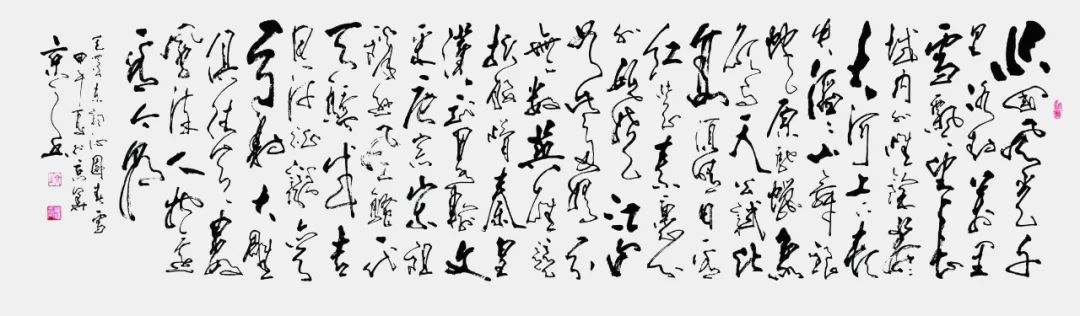 北国风光千
里冰封万里
雪飘望长
城内外惟余莽莽
大河上下顿
失滔滔山舞银
蛇原驰蜡象
欲与天公试比
高须晴日看
红装素裹分
外妖娆江山
如此多娇引
无数英雄竞
折腰惜秦皇
汉武略输文
采唐宗宋祖
稍逊风骚一代
天骄成吉
思汗只识弯
弓射大雕
俱往矣数
风流人物还
看今朝
毛泽东词沁园春雪
甲午夏于京华